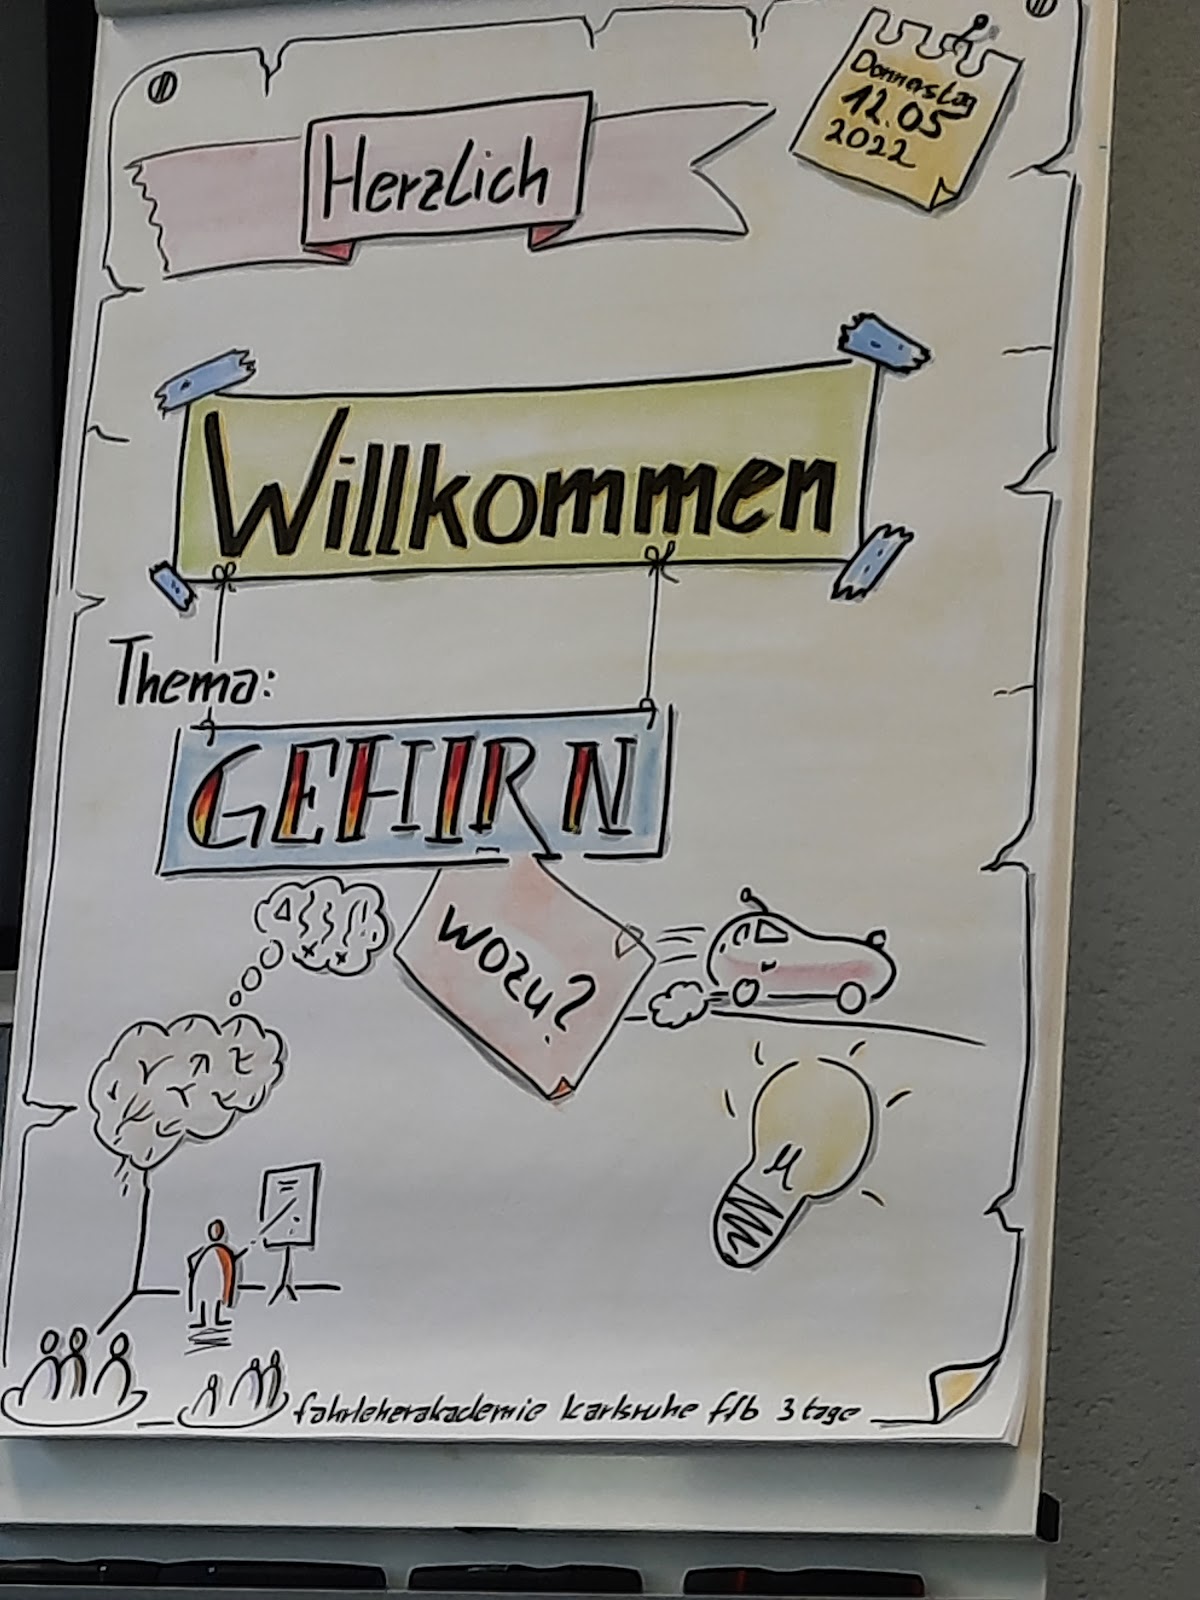 Herzlich
Donnerstag
12.05
2022
Willkommen
Thema:
GEHIRN
wozu?
fahrleherakademie karlsruhe ffb 3 tage